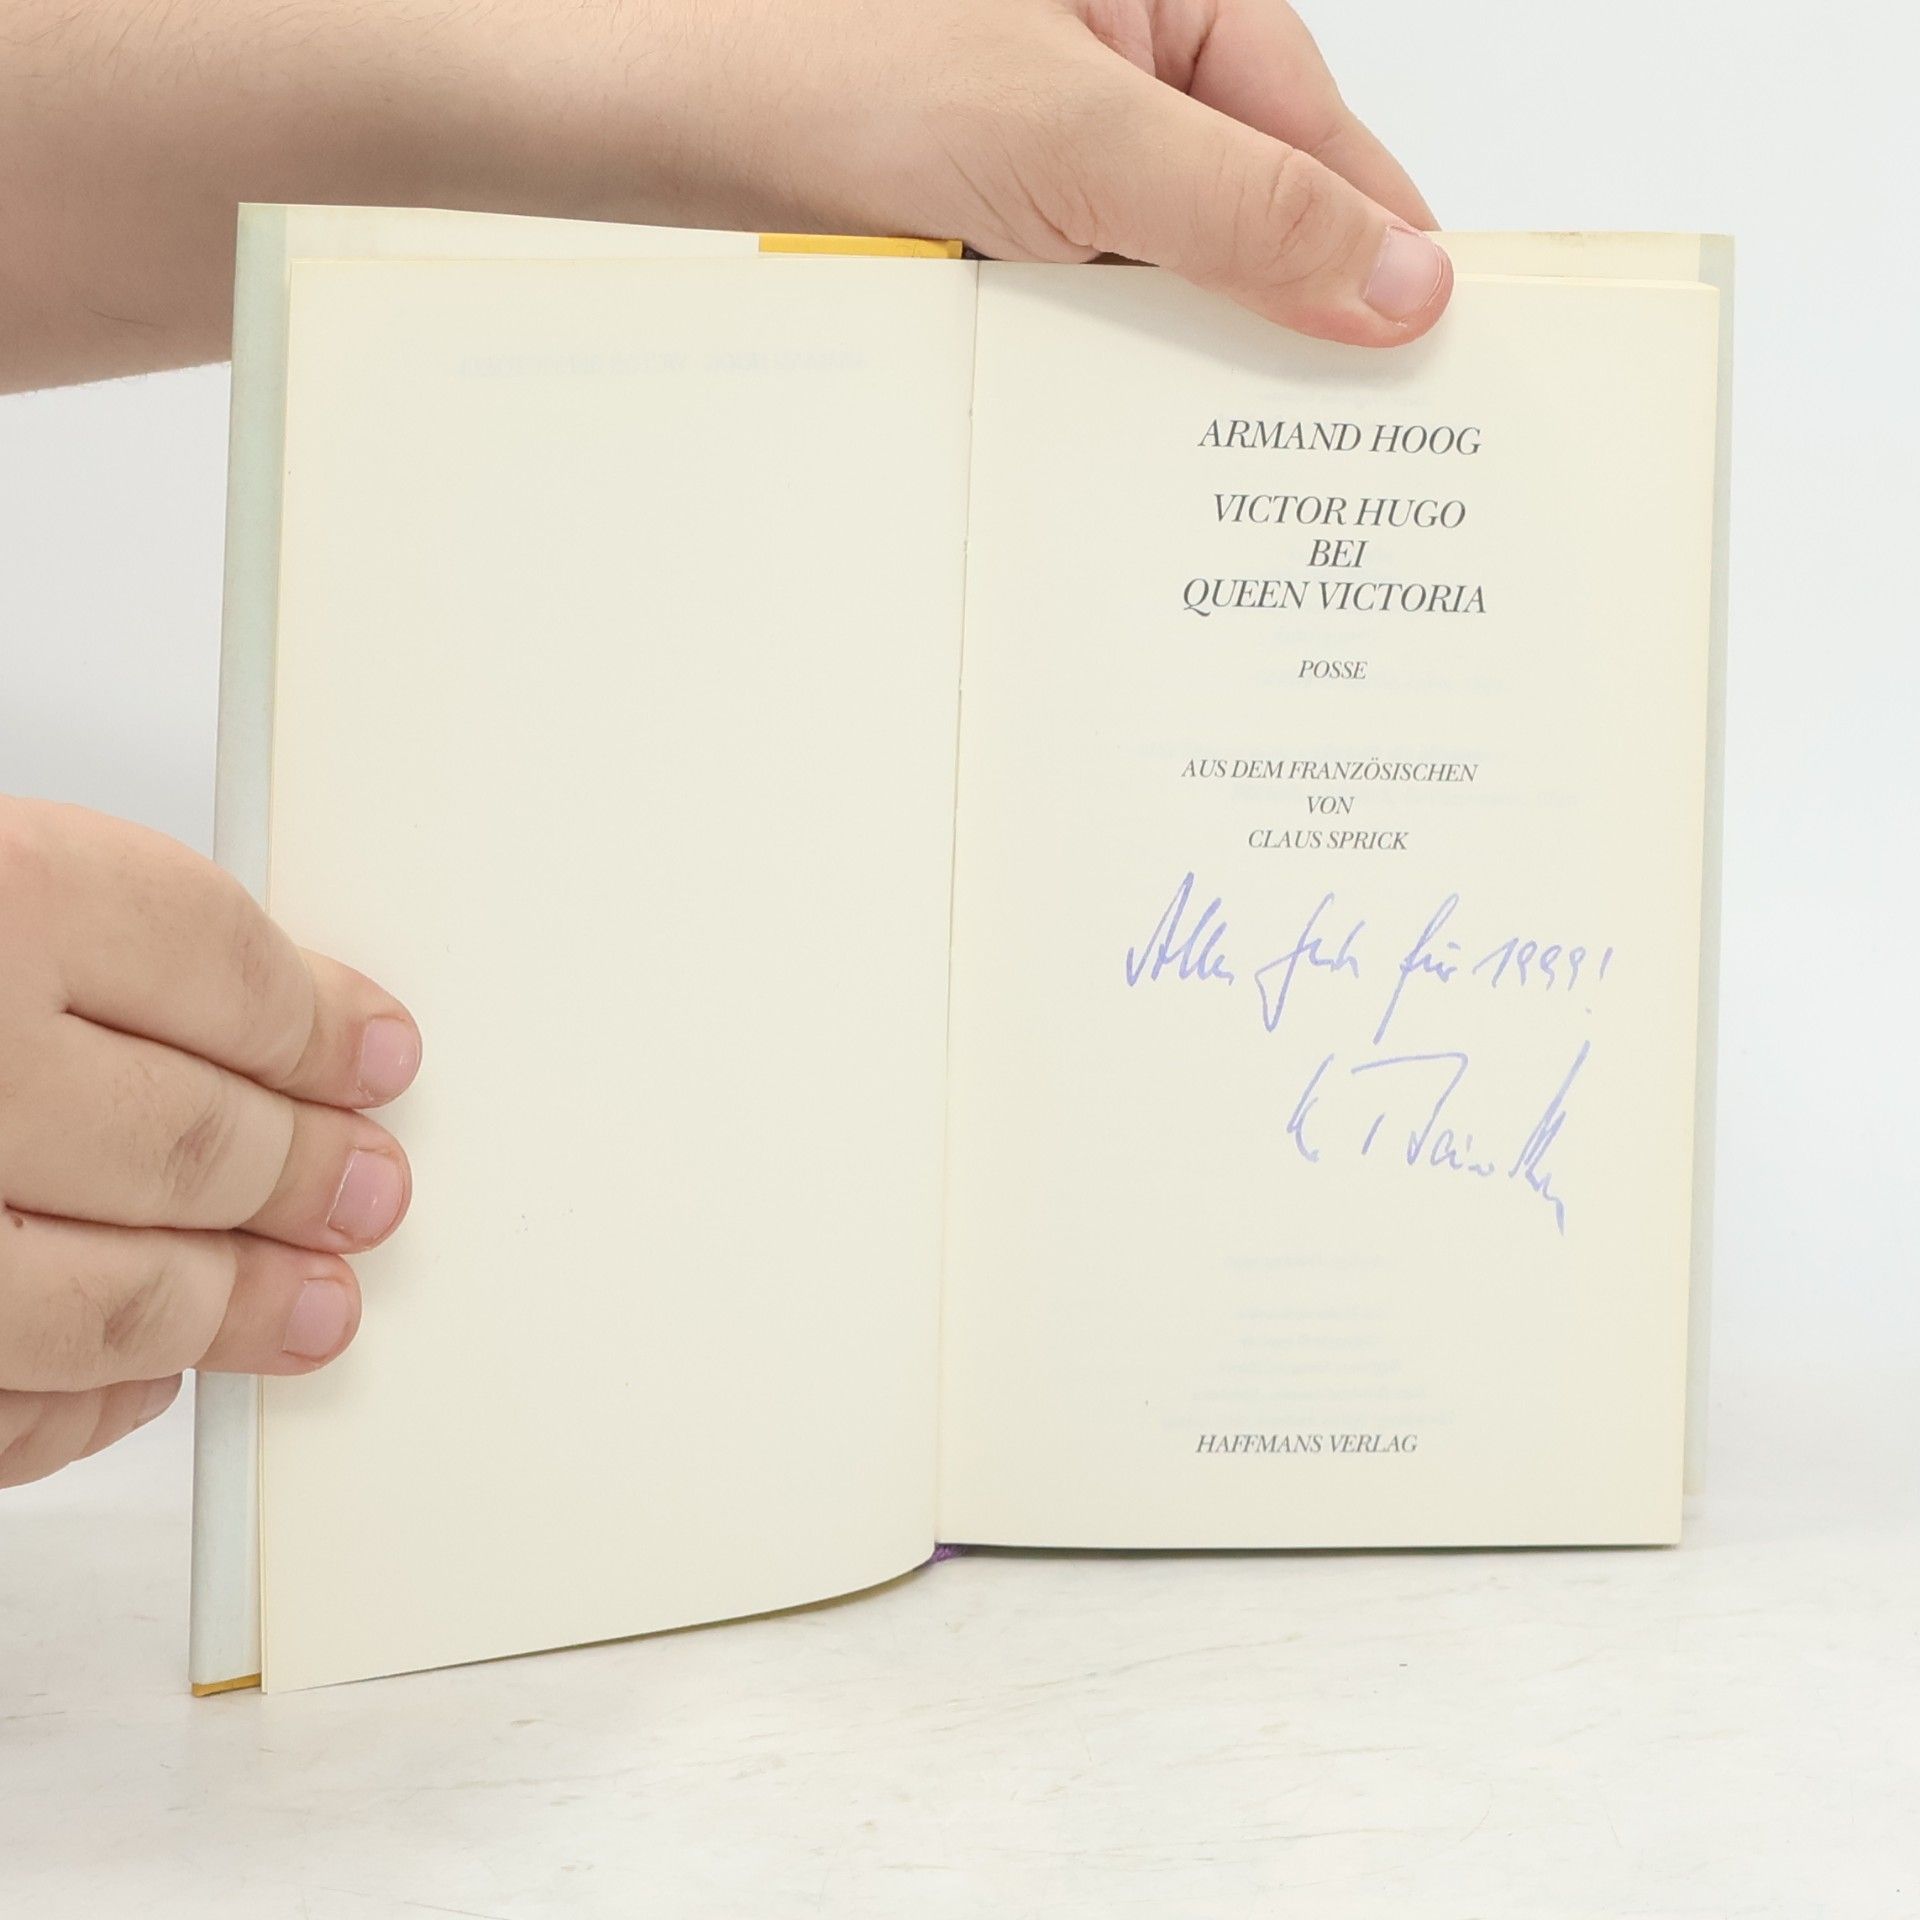 ARMAND HOOG
VICTOR HUGO
BEI
QUEEN VICTORIA
POSSE
AUS DEM FRANZÖSISCHEN
VON
CLAUS SPRICK
Alles Gute für 1999!
HAFFMANS VERLAG